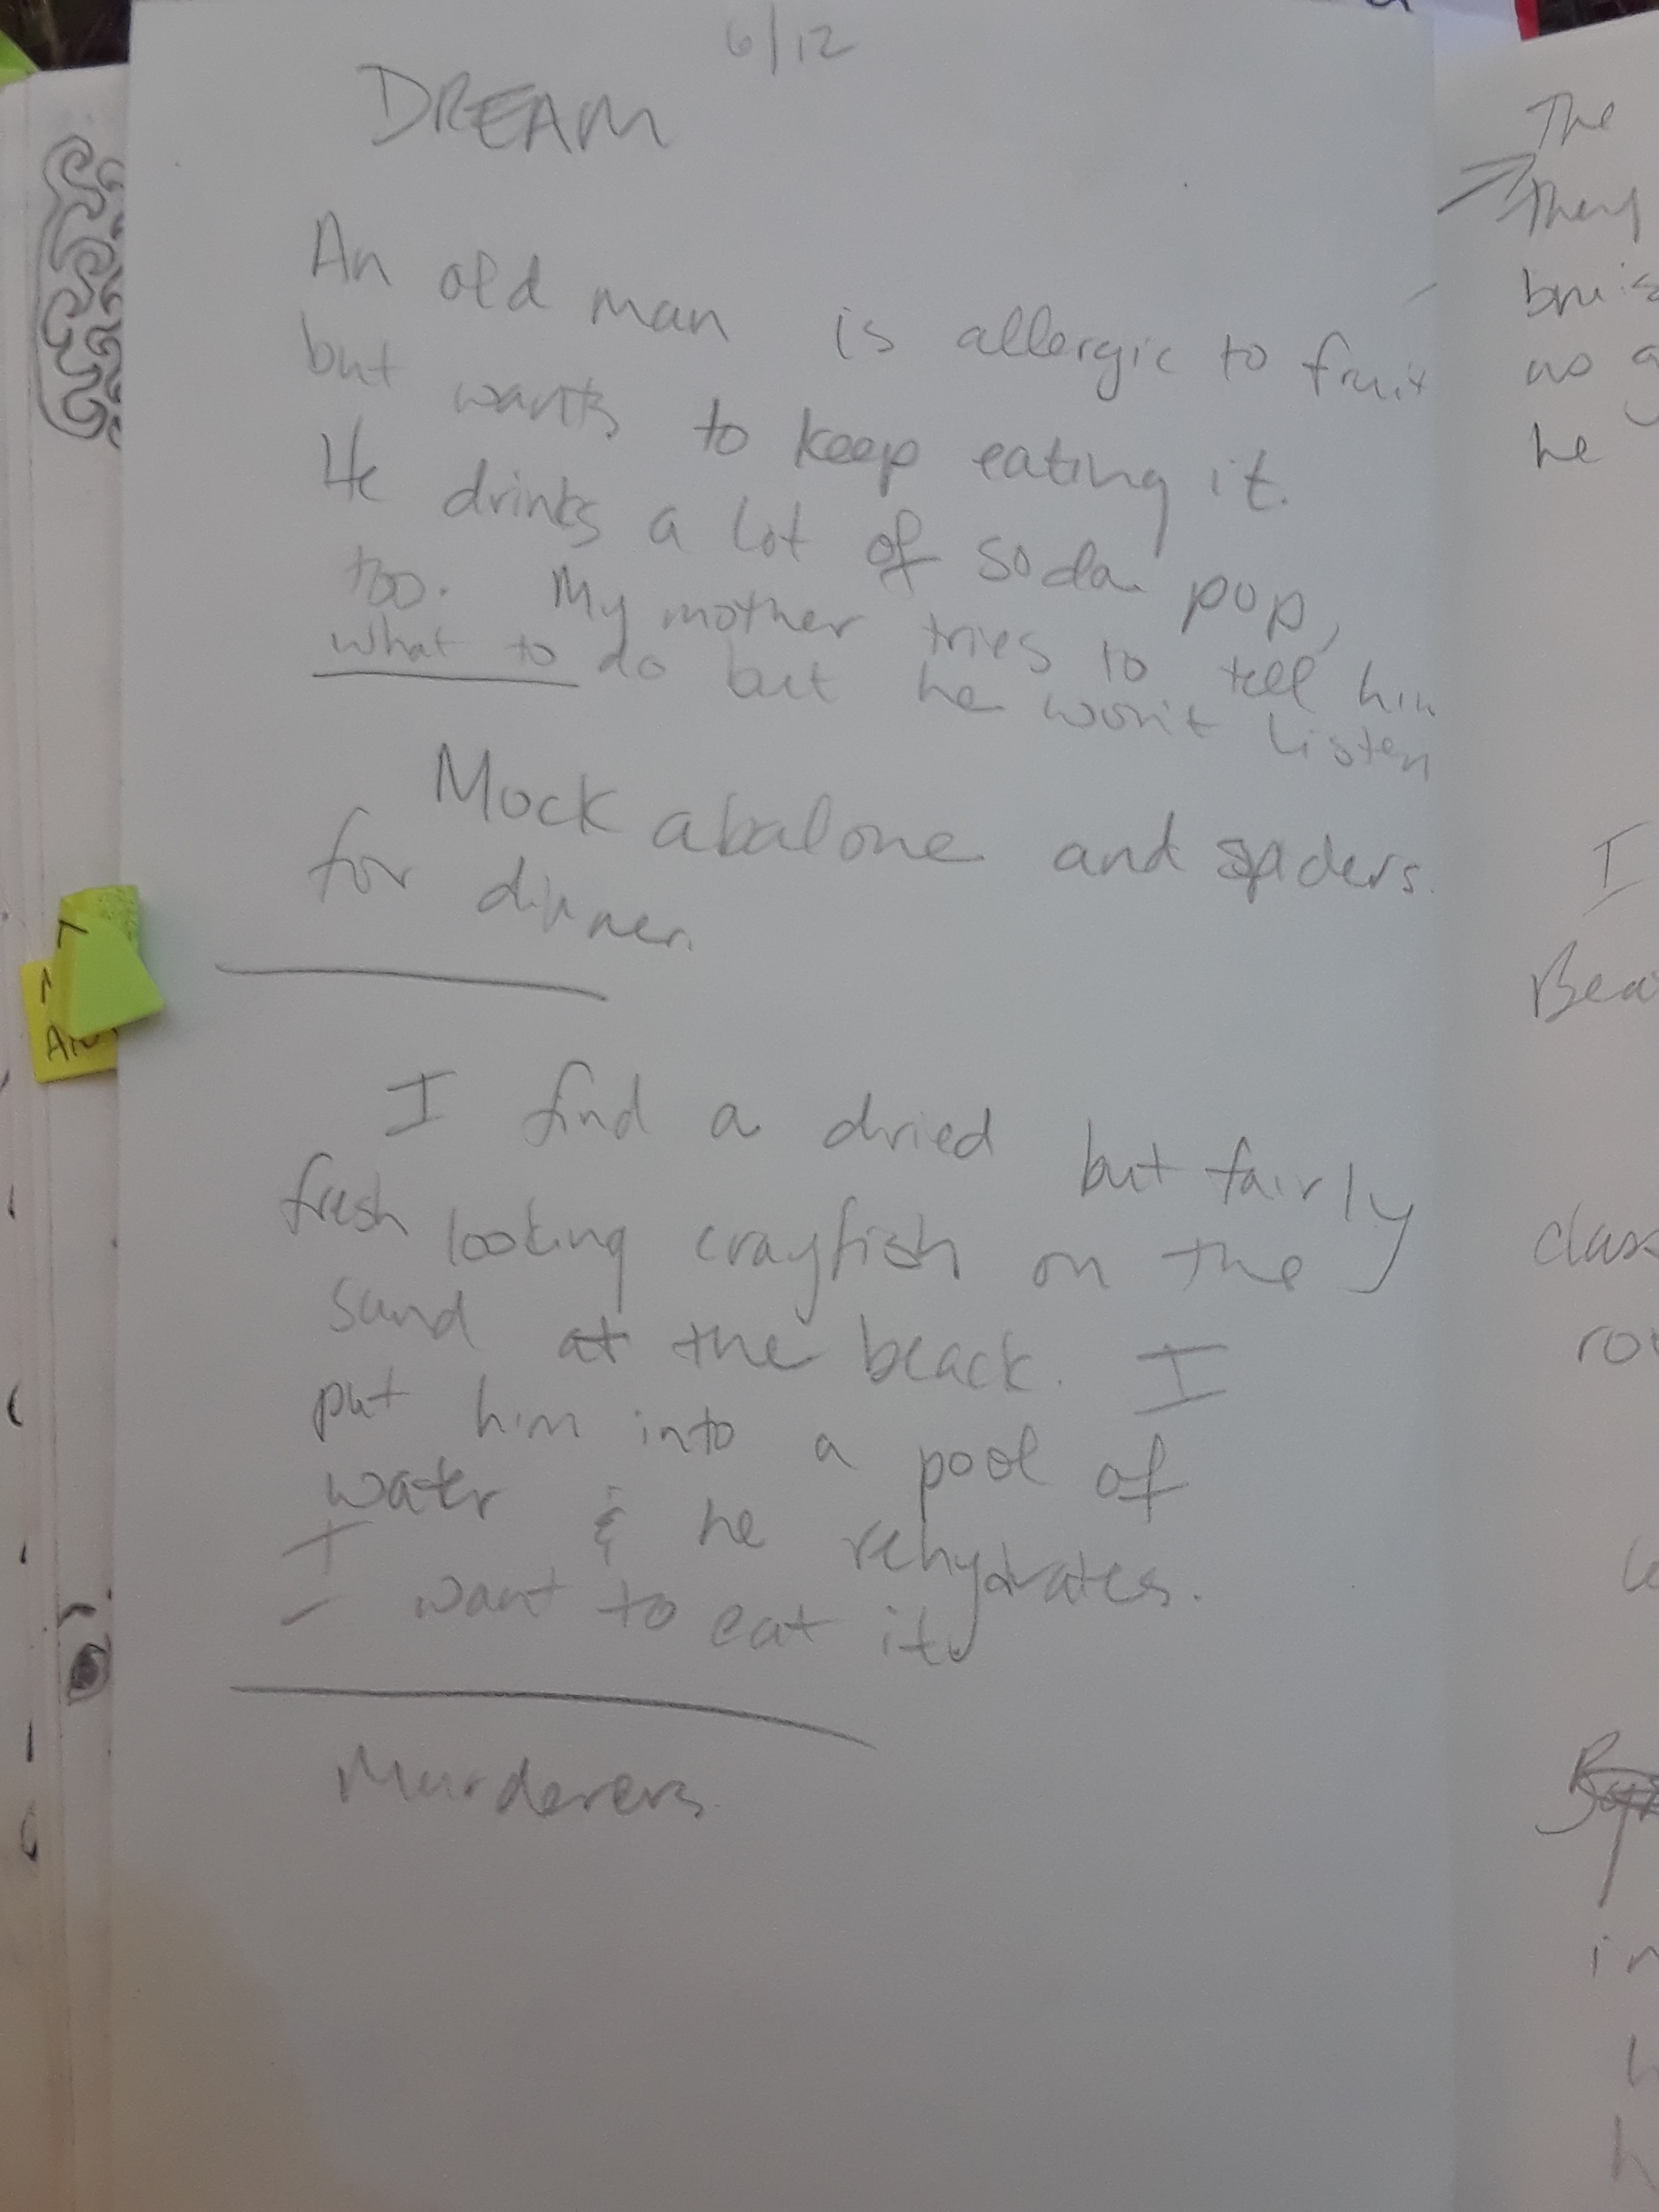 6/12
DREAM
An old man is allergic to fruit
but wants to keep eating it.
He drinks a lot of soda pop,
too. My mother tries to tell him
what to do but he won't listen
Mock abalone and spiders
for dinner.
I find a dried but fairly
fresh looking crayfish on the
sand at the beach. I
put him into a pool of
water & he rehydrates.
I want to eat it.
Murderers.
The
They
as
he
I